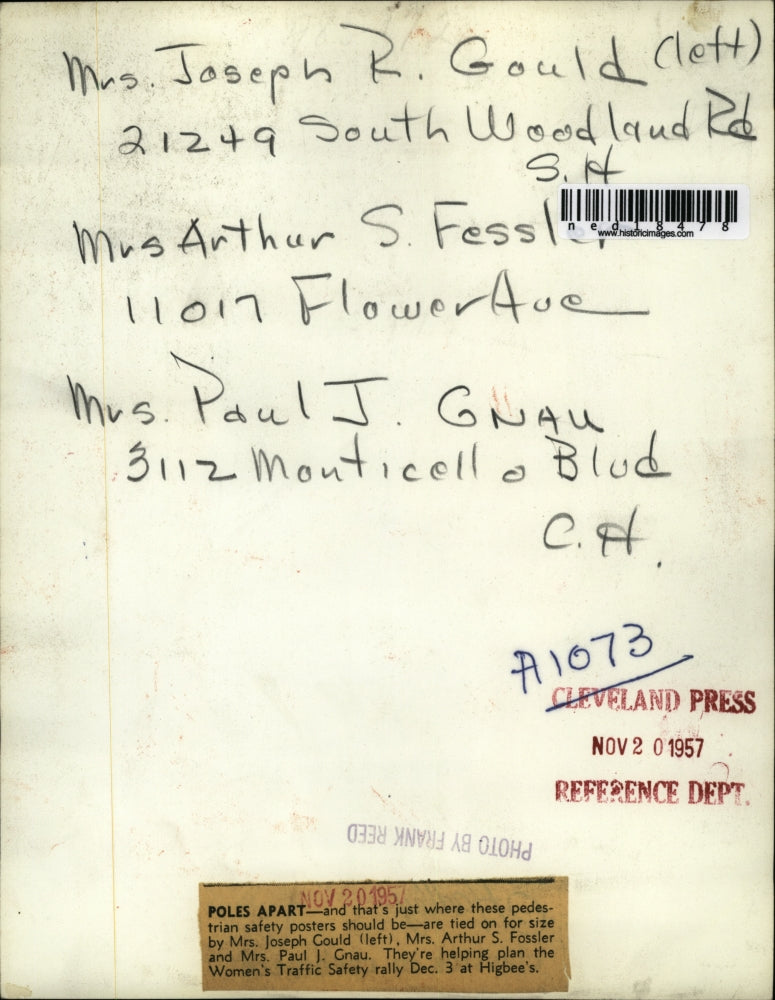 Mrs. Joseph R. Gould (left)
21249 South Woodland Rd
S.H
Mrs Arthur S. Fessler
ned18478
www.historicimages.com
11017 Flower Ave
Mrs. Paul J. GNAU
3112 Monticello Blvd
C.H.
A1073
CLEVELAND PRESS
NOV 20 1957
REFERENCE DEPT.
PHOTO BY FRANK REED
NOV 20 1957
POLES APART—and that's just where these pedes-
trian safety posters should be—are tied on for size
by Mrs. Joseph Gould (left), Mrs. Arthur S. Fossler
and Mrs. Paul J. Gnau. They're helping plan the
Women's Traffic Safety rally Dec. 3 at Higbee's.